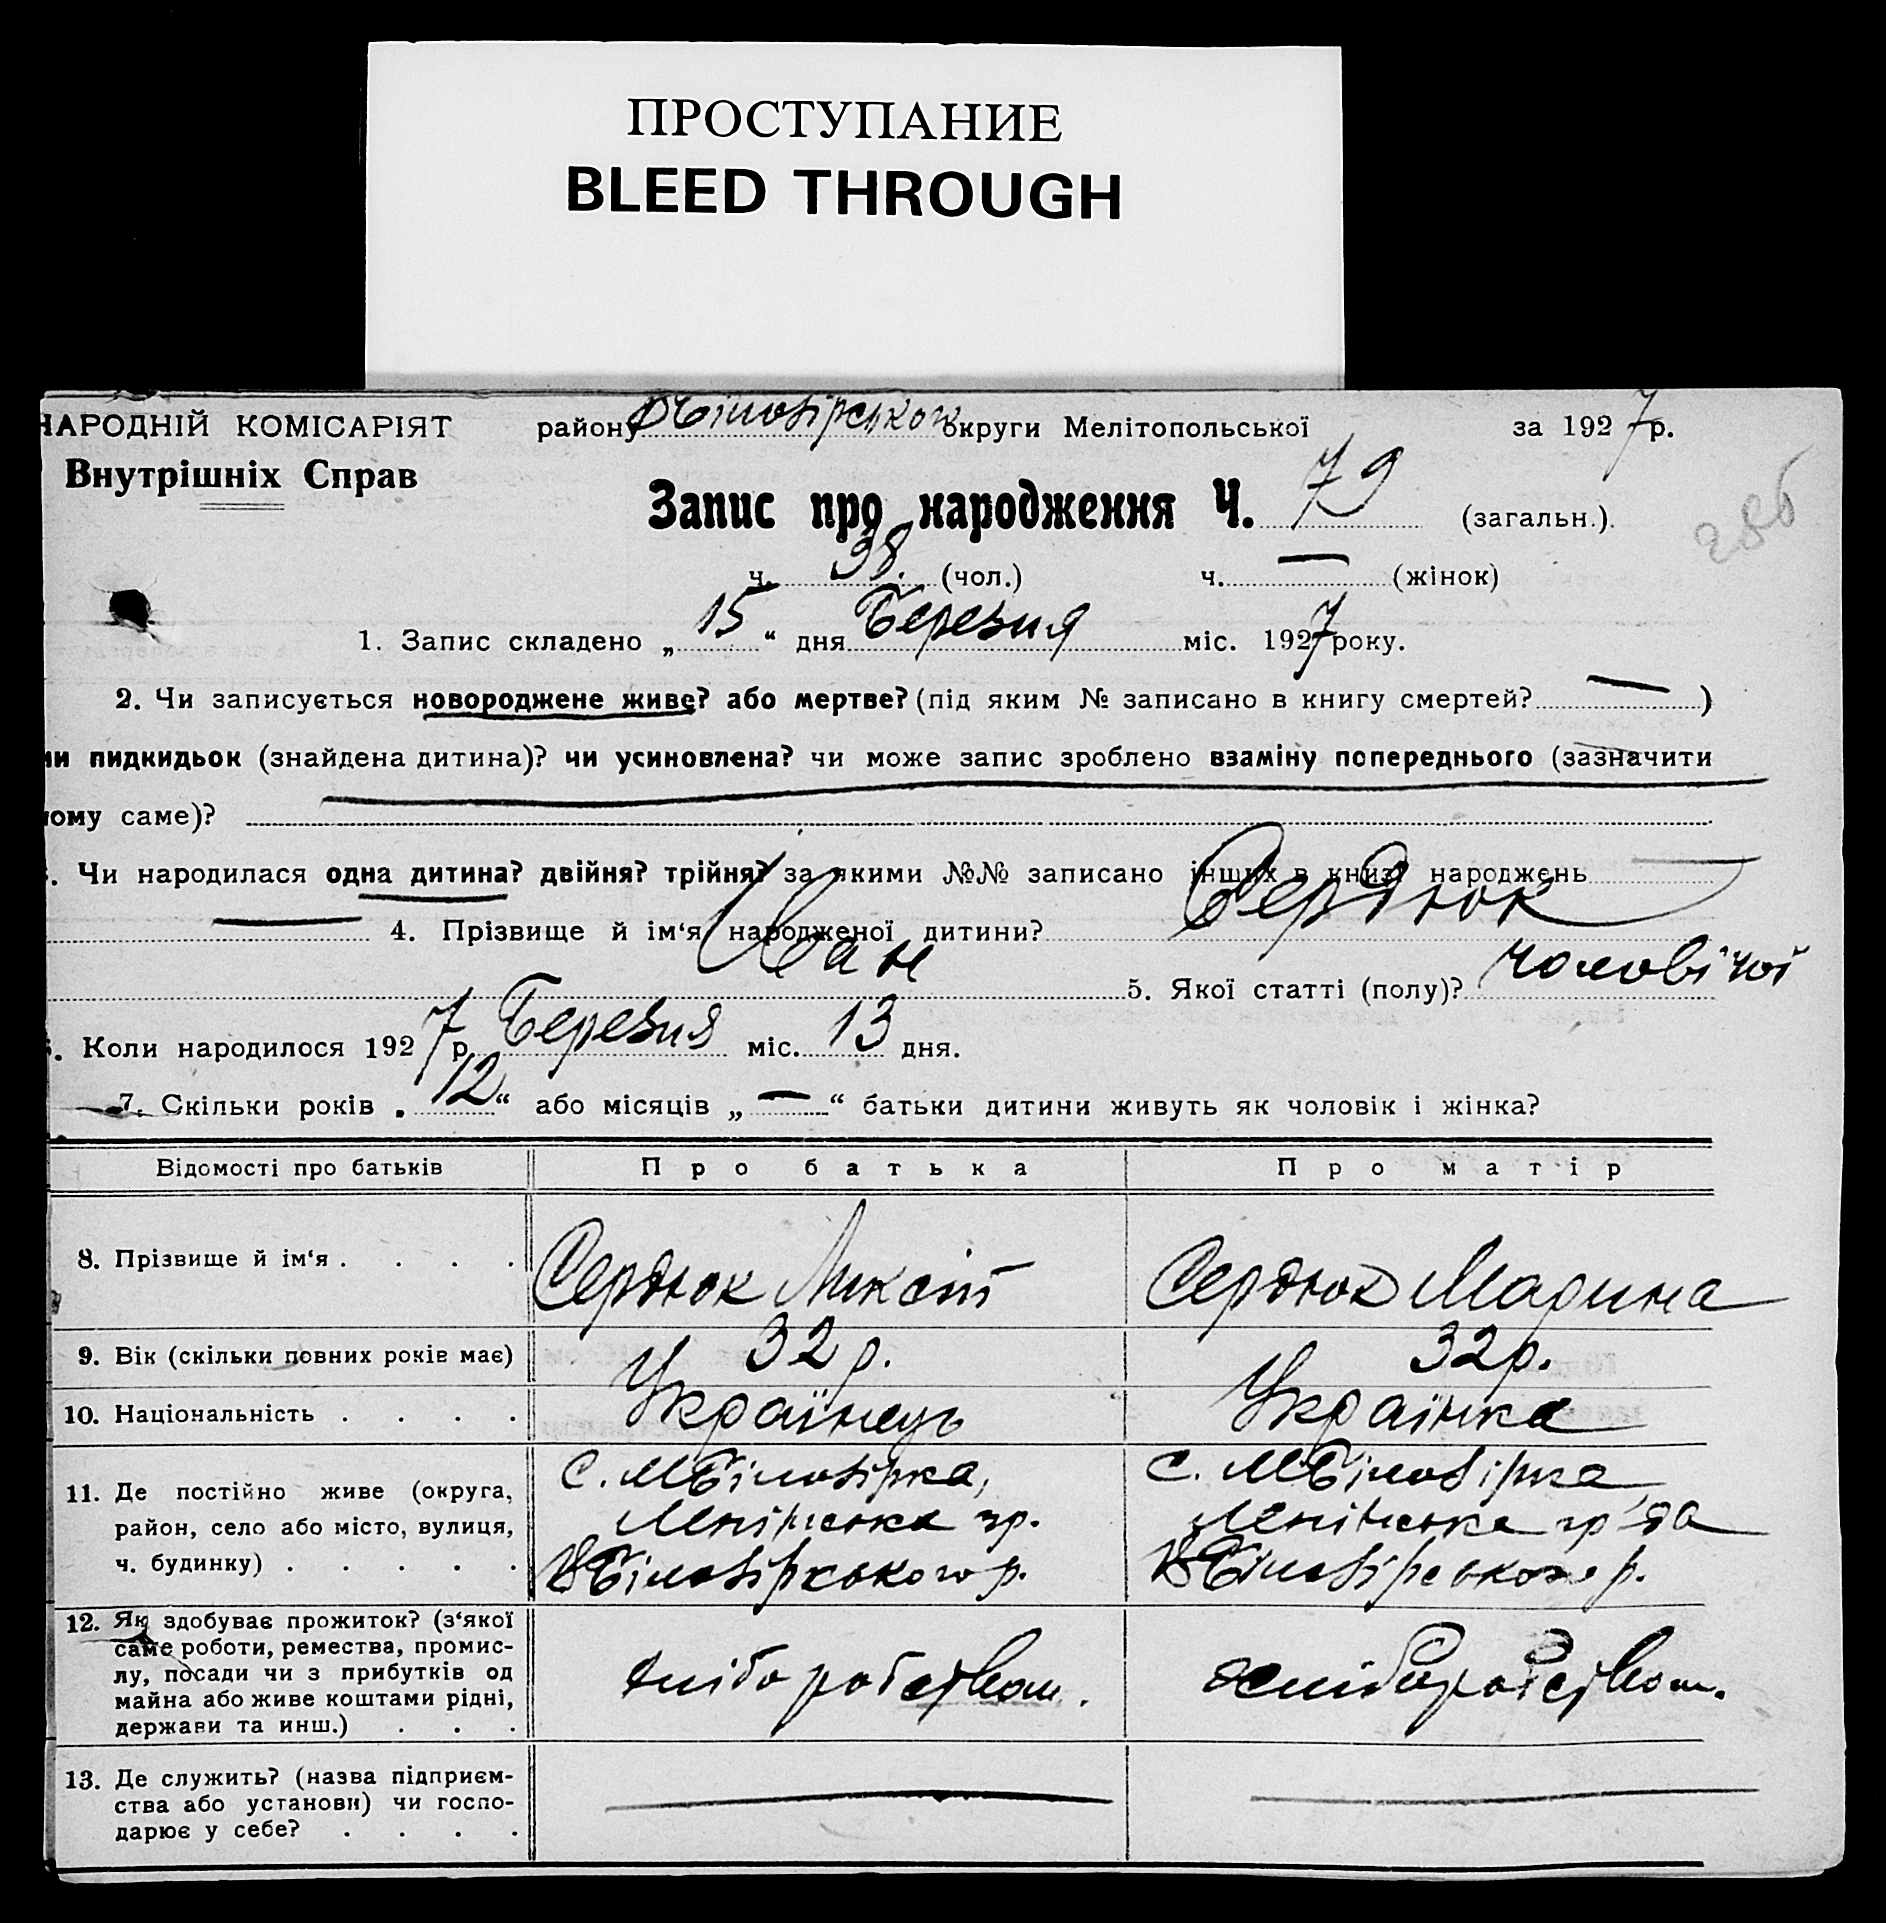 ПРОСТУПАНИЕ
BLEED THROUGH
НАРОДНІЙ КОМІСАРІЯТ
Внутрішніх Справ
району ВБілозірського округи Мелітопольської за 1927р.
Запис про народження Ч. 79 (загальн.).
286
ч. 38. (чол.) ч. — (жінок)
1. Запис складено „15“ дня Березня міс. 1927 року.
2. Чи записується новороджене живе? або мертве? (під яким № записано в книгу смертей? — )
чи пидкидьок (знайдена дитина)? чи усиновлена? чи може запис зроблено взаміну попереднього (зазначити
чому саме)?
3. Чи народилася одна дитина? двійня? трійня? за якими №№ записано інших в книзі народжень
— 4. Прізвище й ім‘я народженої дитини? Сердюк
Іван 5. Якої статті (полу)? чоловічої
6. Коли народилося 1927 р. Березня міс. 13 дня.
7. Скільки років „12“ або місяців „—“ батьки дитини живуть як чоловік і жінка?
Відомості про батьків Про батька Про матір
8. Прізвище й ім‘я . . . . Сердюк Микита Сердюк Марина
9. Вік (скільки повних років має) 32 р. 32 р.
10. Національність . . . . Українець Українка
11. Де постійно живе (округа,
район, село або місто, вулиця,
ч. будинку) . . . . .
с. МБілозірка,
Ленінська гр.
ВБілозірського р.
с. МБілозірка
Ленінська гр-да
ВБілозірського р.
12. Як здобуває прожиток? (з‘якої
саме роботи, ремества, промис-
лу, посади чи з прибутків од
майна або живе коштами рідні,
держави та инш.) . . .
хліборобством.
хліборобством.
13. Де служить? (назва підприєм-
ства або установи) чи госпо-
дарює у себе? . . . .